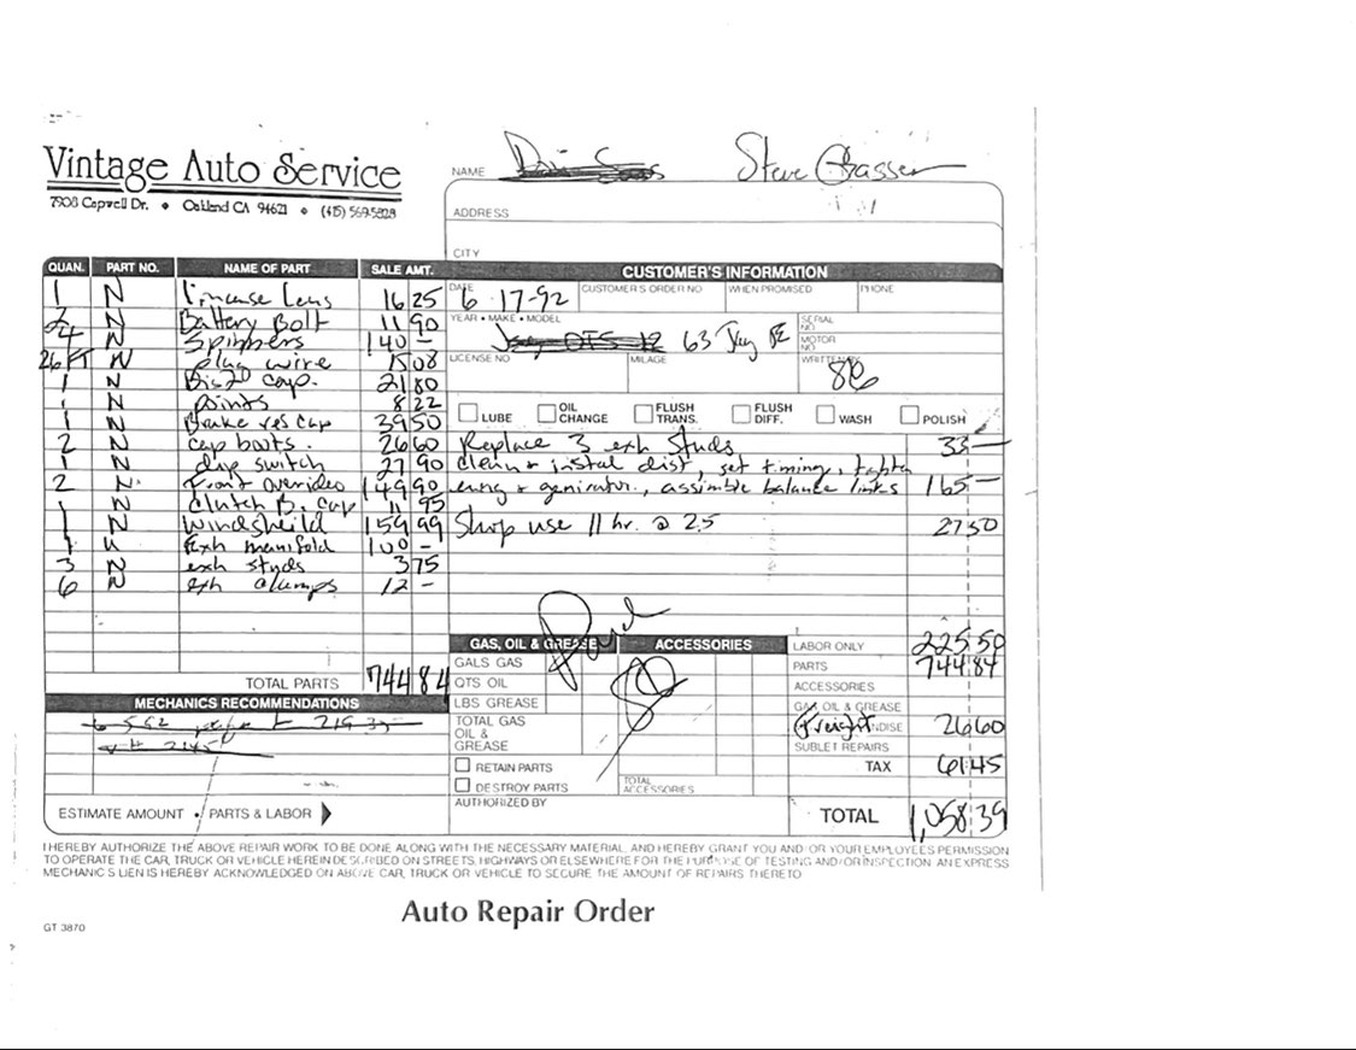 Vintage Auto Service
7908 Capwell Dr. • Oakland CA 94621 • (415) 569-5828
NAME Steve
ADDRESS
CITY
QUAN. PART NO. NAME OF PART SALE AMT.
CUSTOMER'S INFORMATION
DATE 6-17-92 CUSTOMER'S ORDER NO WHEN PROMISED PHONE
YEAR • MAKE • MODEL 63 Jag SERIAL NO. MOTOR NO.
LICENSE NO MILAGE WRITTEN BY
LUBE OIL CHANGE FLUSH TRANS. FLUSH DIFF. WASH POLISH
1 N lincense Lens 16 25
2 N Battery Bolt 11 90
4 N Spinners 140 -
26 FT N plug wire 15 08
1 N cap. 21 80
1 N points 8 22
1 N Brake res cap 39 50
2 N cap boots. 26 60
1 N dip switch 27 90
2 N Front overides 149 90
1 N Clutch B. cap 11 95
1 N Windsheild 159 99
1 u Exh manifold 100 -
3 N exh studs 3 75
6 N exh clamps 12 -
TOTAL PARTS 744 84
Replace 3 exh Studs 33 -
clean & instal dist, set timing,
& genirator, assimble balance links 165 -
Shop use 11 hr. @ 2.5 27 50
Paid
GAS, OIL & GREASE ACCESSORIES
GALS GAS
QTS OIL
LBS GREASE
TOTAL GAS OIL & GREASE
RETAIN PARTS
DESTROY PARTS
TOTAL ACCESSORIES
AUTHORIZED BY
LABOR ONLY 225 50
PARTS 744 84
ACCESSORIES
GAS, OIL & GREASE
Freight 26 60
SUBLET REPAIRS
TAX 61 45
TOTAL 1,058 39
MECHANICS RECOMMENDATIONS
ESTIMATE AMOUNT • PARTS & LABOR
I HEREBY AUTHORIZE THE ABOVE REPAIR WORK TO BE DONE ALONG WITH THE NECESSARY MATERIAL, AND HEREBY GRANT YOU AND/OR YOUR EMPLOYEES PERMISSION
TO OPERATE THE CAR, TRUCK OR VEHICLE HEREIN DESCRIBED ON STREETS, HIGHWAYS OR ELSEWHERE FOR THE PURPOSE OF TESTING AND/OR INSPECTION. AN EXPRESS
MECHANICS LIEN IS HEREBY ACKNOWLEDGED ON ABOVE CAR, TRUCK OR VEHICLE TO SECURE THE AMOUNT OF REPAIRS THERETO
Auto Repair Order
GT 3870